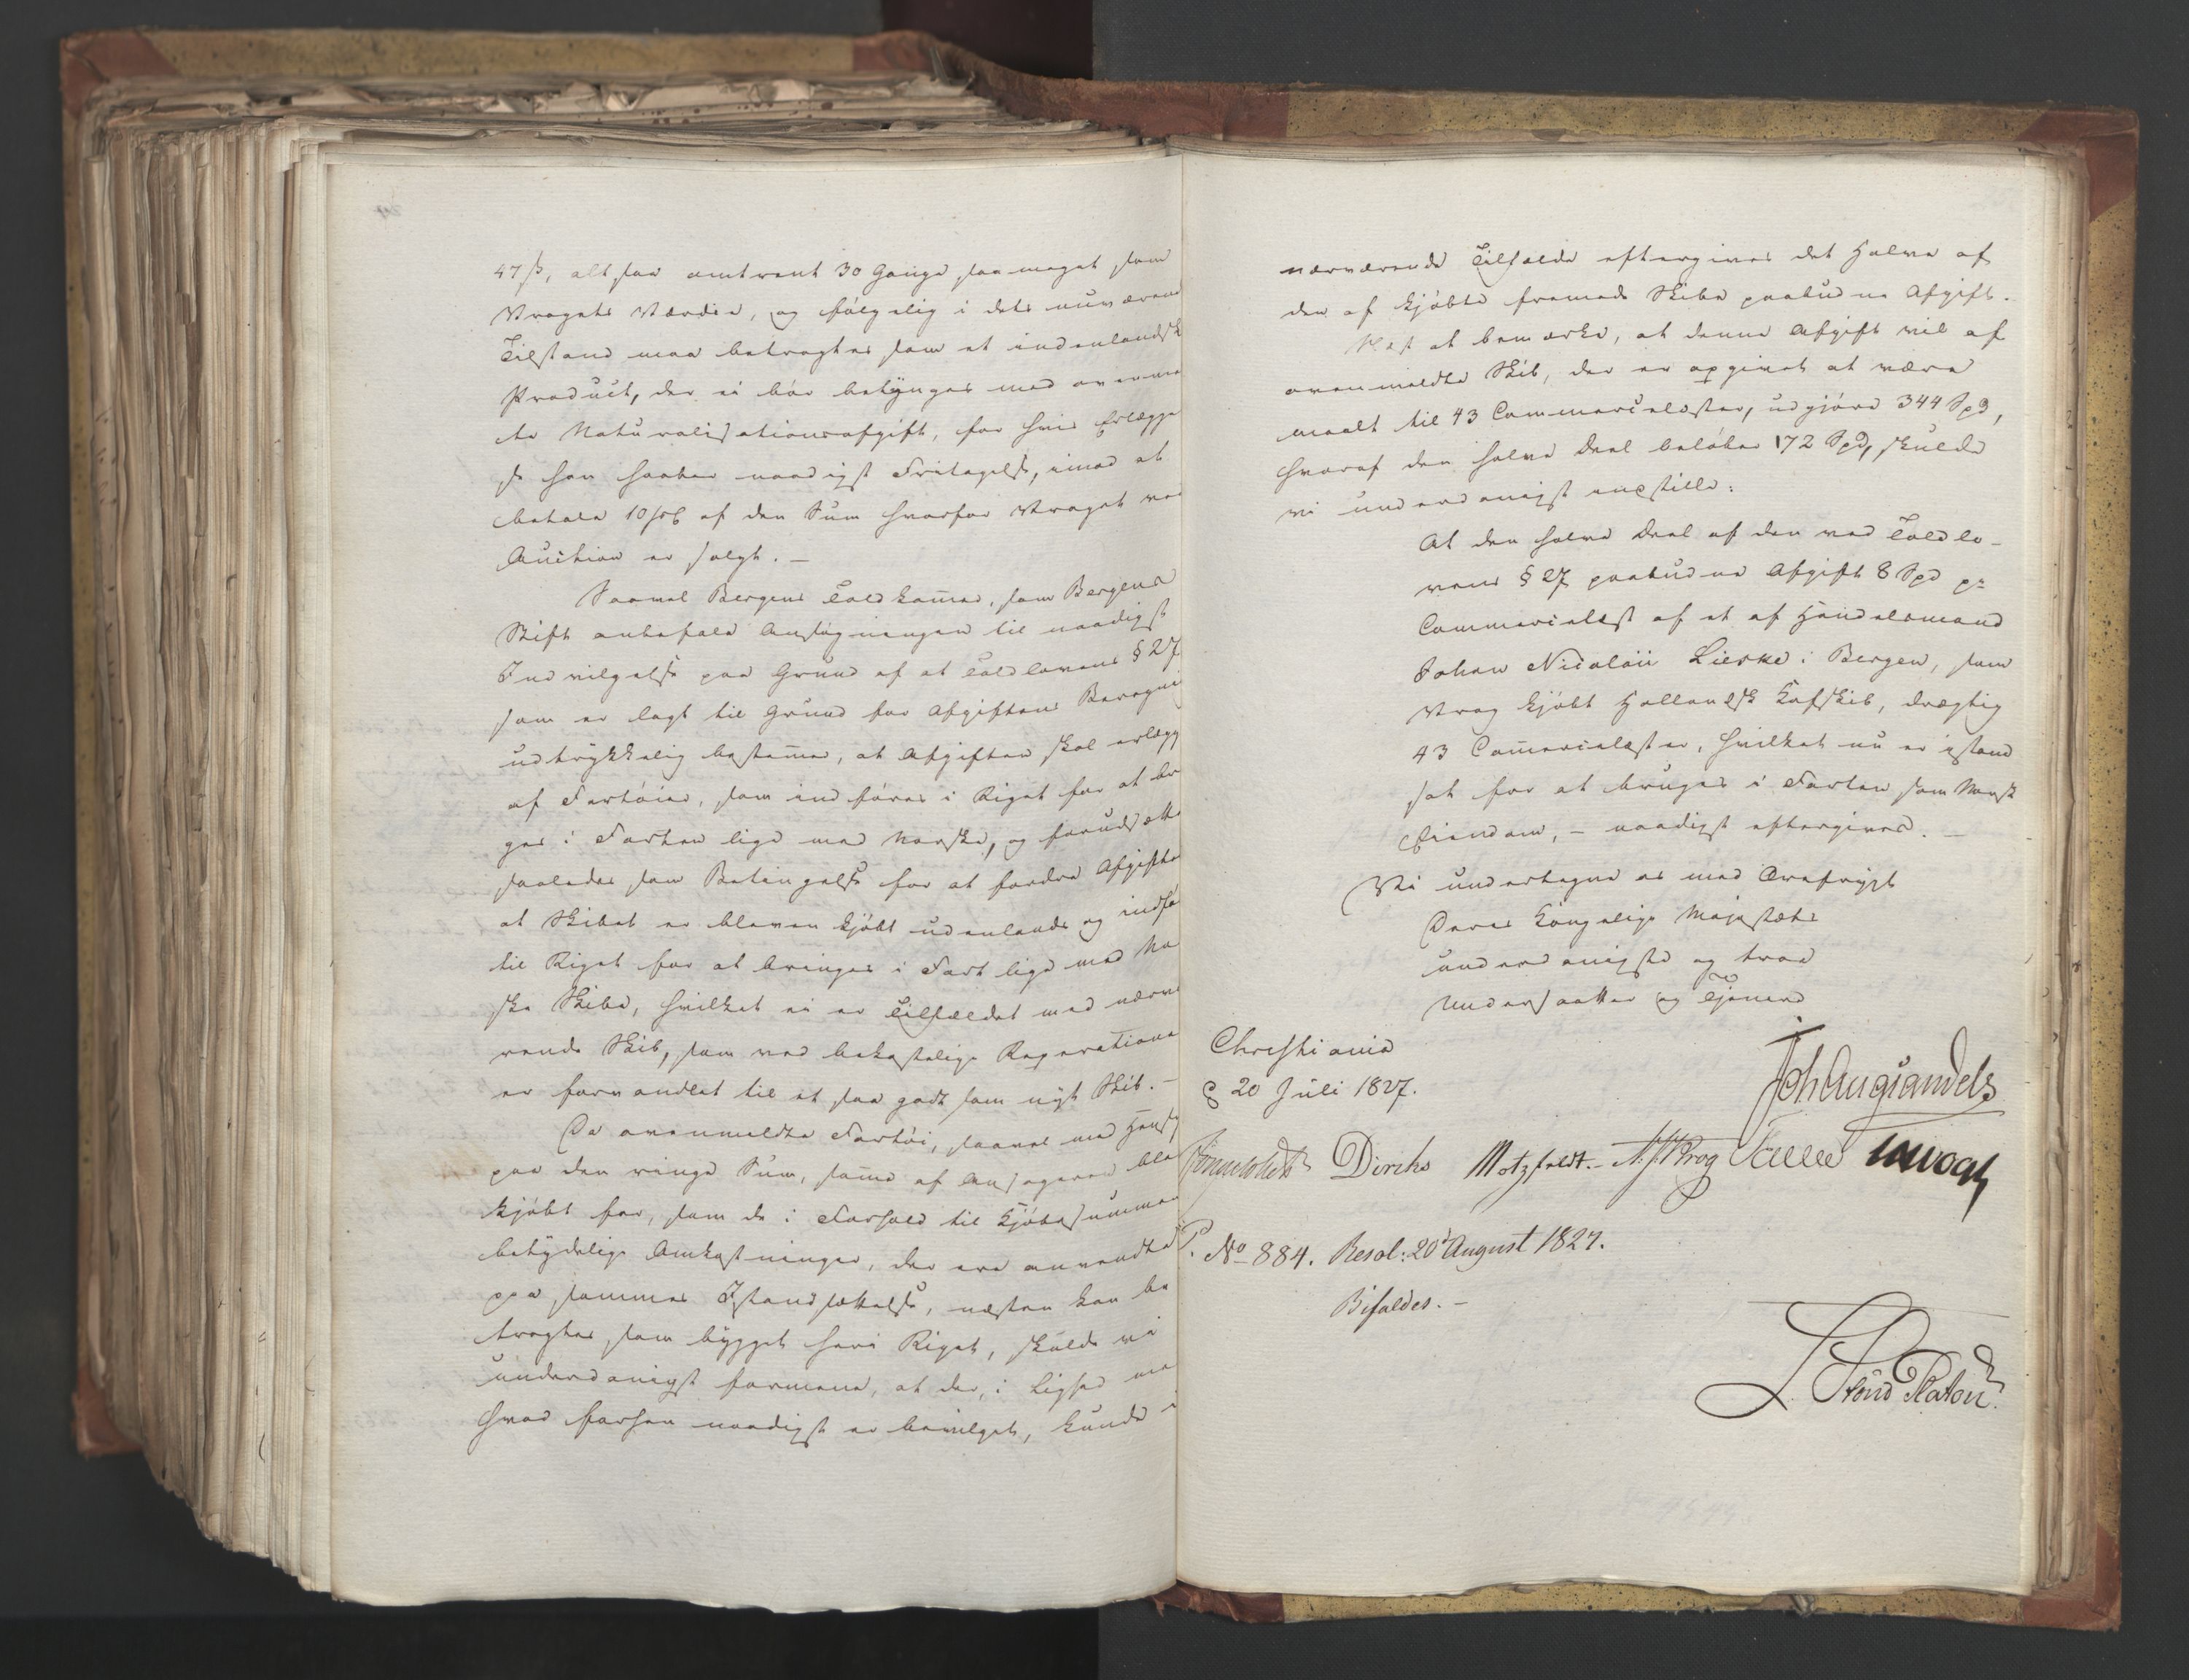 47 ß, altsaa omtrent 30 Gange saa meget som
Vragets Værdie, og følgelig i dets nuværend
Tilstand maa betragtes som et indenlandsk
Product, der ei bør betynges med
te Naturalisationsafgift, for hvis Erlægge
se han haaber naadigst Fritagelse, imod at
betale 10 pC af den Sum hvorfor Vraget ved
Auction er solgt. –
Saavel Bergens Toldkammer, som Bergens
Stift anbefale Ansøgningen til naadigst
Indvilgelse paa Grund af at Toldlovens § 27
som er lagt til Grund for Afgiftens Beregni
udtrykkelig bestemmer, at Afgiften skal erlægg
af Fartøier, som indføres i Riget for at br
ges i Farten lige med Norske, og forudsætte
saaledes som Betingelse for at fordre Afgifte
at Skibet er bleven kjøbt udenlands og indfø
til Riget for at bringes i Fart lige med No
ske Skibe, hvilket ei er Tilfældet med nærvæ
rende Skib, som ved bekostelige Reparationer
er forvandlet til et saa godt som nyt Skib. –
Da ovenmeldte Fartøi, saavel med Hensy
paa den ringe Sum, samme af Ansøgeren blev
kjøbt for, som de i Forhold til Kjøbesummen
betydelige Omkostninger, der ere anvendte
paa sammes Istandsættelse, næsten kan be
tragtes som bygget her i Riget, skulde vi
underdanigst formene, at der, i Lighed med
hvad forhen naadigst er bevilget, kunde i
nærværende Tilfælde eftergives det Halve af
den af kjøbte fremmede Skibe paabudne Afgift.
Næst at bemærke, at denne Afgift vil af
ovenmeldte Skib, der er opgivet at være
maalt til 43 Commercelæster, udgjøre 344 Spd,
hvoraf den halve Deel beløber 172 Spd, skulde
vi underdanigst indstille:
At den halve Deel af den ved Toldlo-
vens § 27 paabudne Afgift 8 Spd pr
Commercelæst af et af Handelsmand
Johan Nicolaii Lierke i Bergen, som
Vrag kjøbt Hollandsk Kofskib, drægtig
43 Commercelæster, hvilket nu er istand
sat for at bruges i Farten som Norsk
Eiendom, – naadigst eftergives. –
Vi undertegne os med Ærefrygt
Deres Kongelige Majestæts
underdanigste og troe
Undersaatter og Tjenere
Christiania
d 20 Juli 1827.
Joh Aug Sandels
Diriks Motzfeldt. – Krog Collett
No 884. Resol: 20d August 1827.
Bifaldes. –